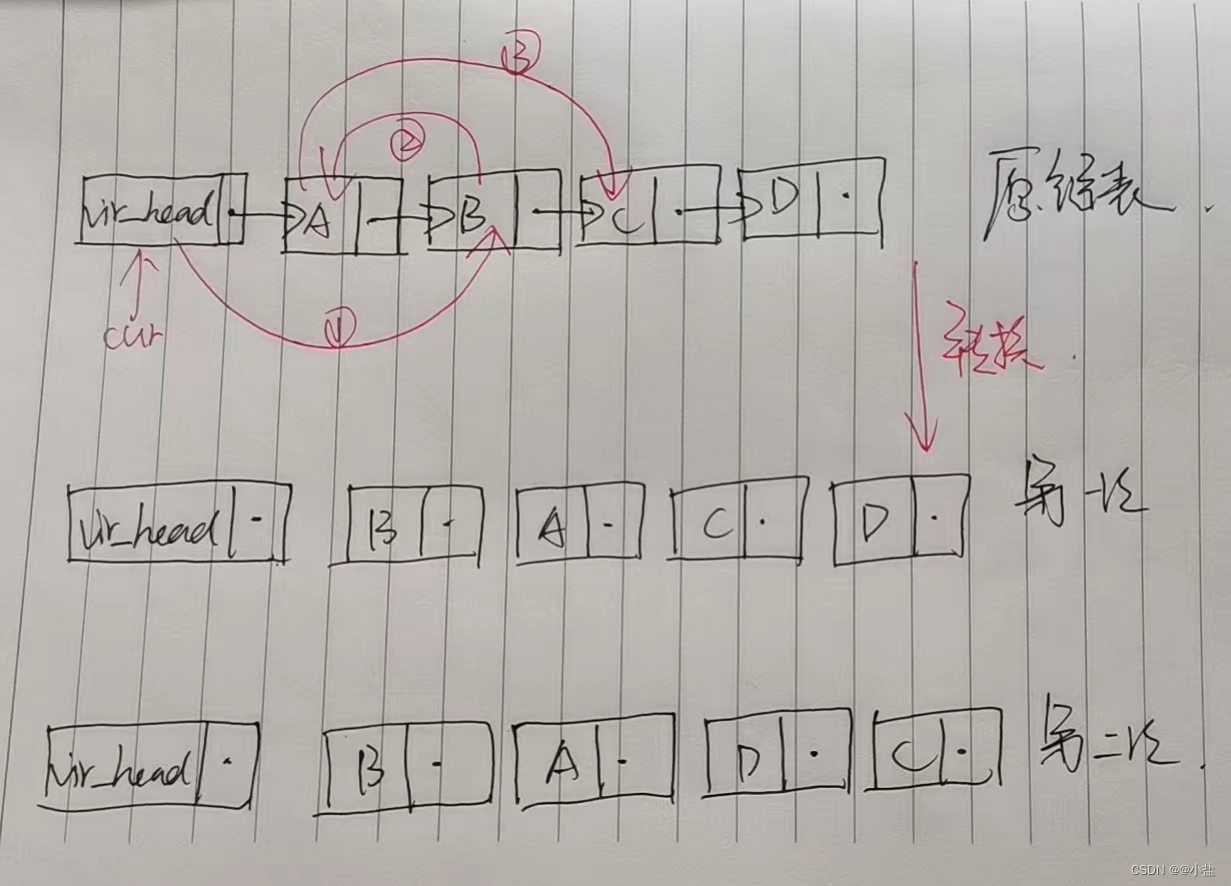 ③
②
vir_head A B C D 原链表.
cur ① 转换.
vir_head B A C D 第一次
vir_head B A D C 第二次.
CSDN @@小盐